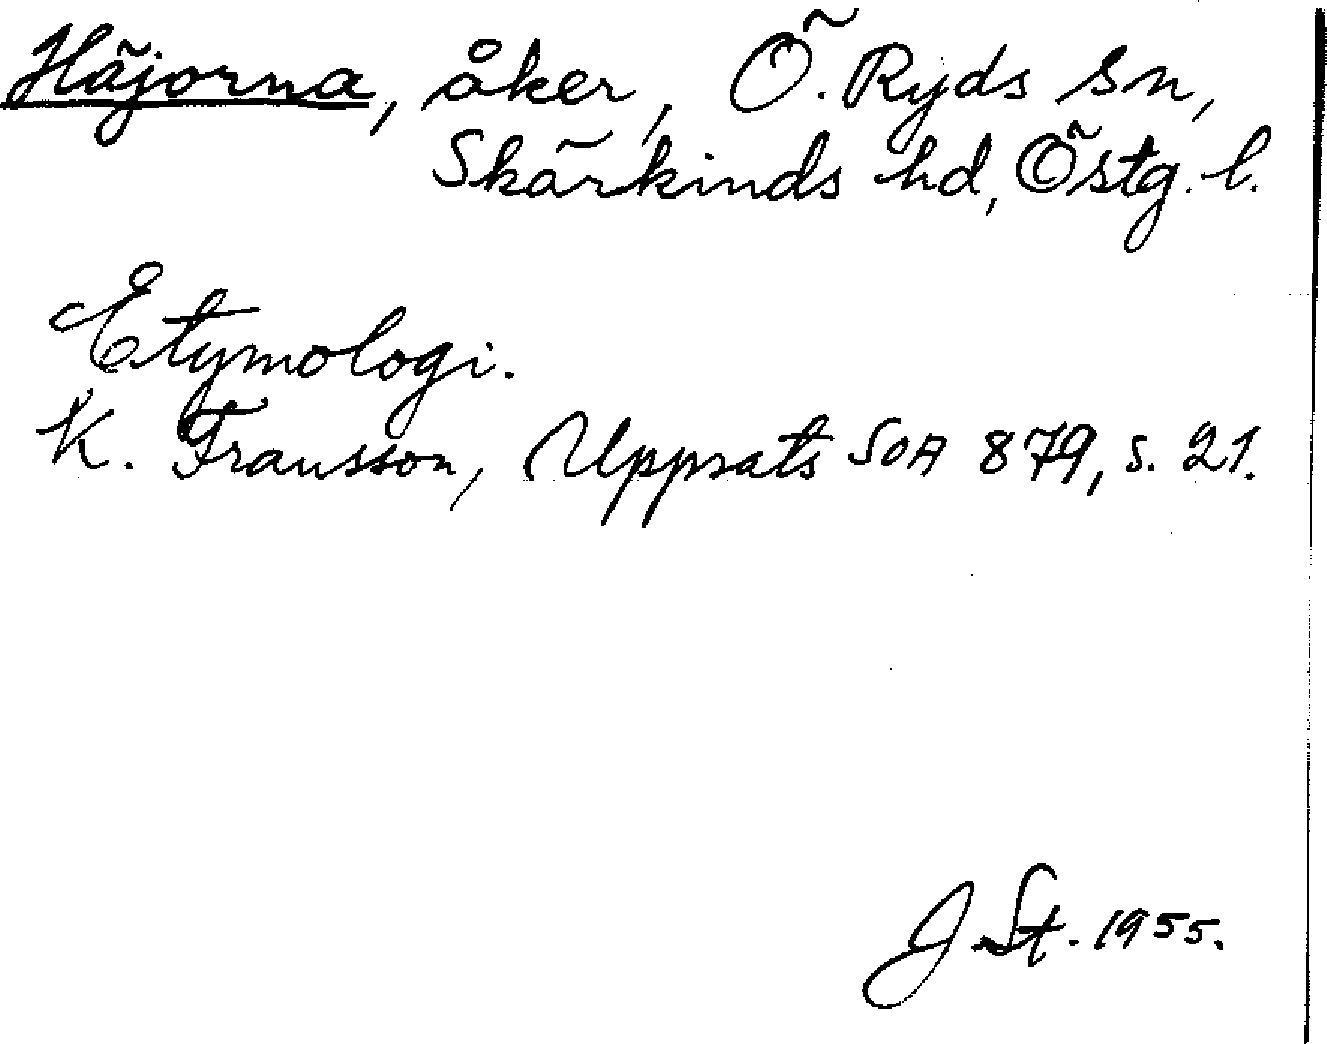 Häjorna, åker, Ö. Ryds sn,
Skärkinds hd, Östg. l.
Etymologi.
K. Fransson, Uppsats SOA 879, s. 21.
J. St. 1955.